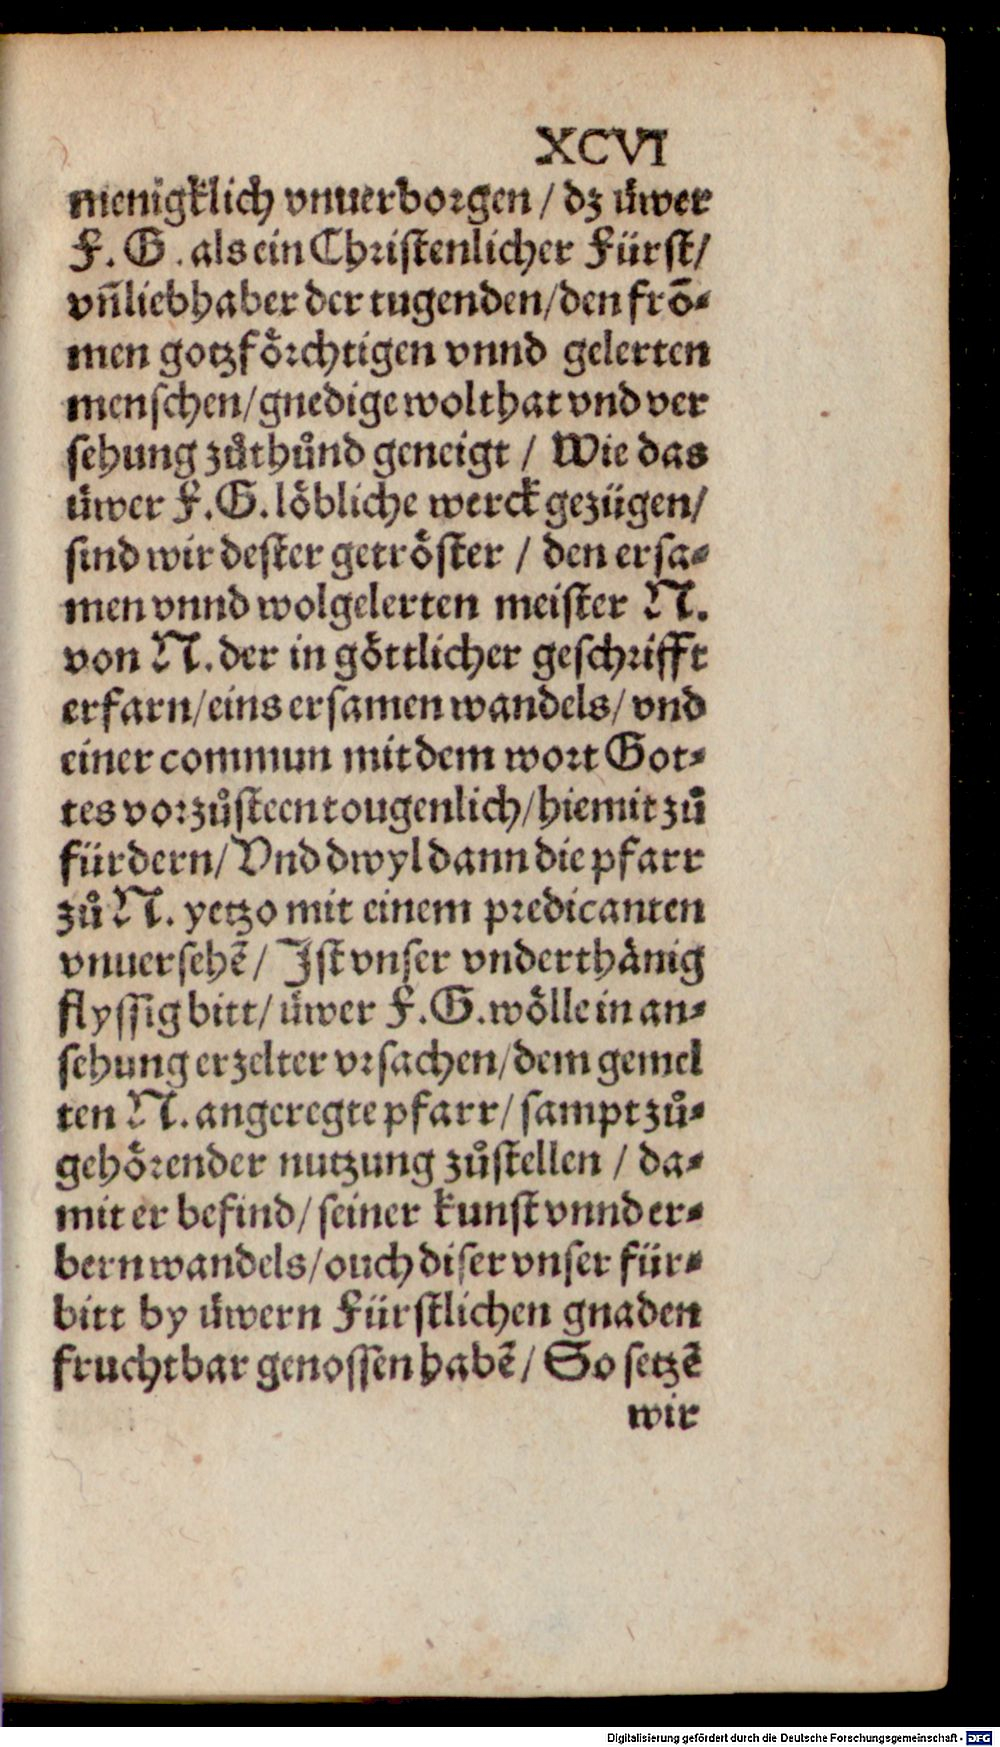 XCVI
menigklich vnuerborgen / dz üwer
F. G. als ein Christenlicher Fürst/
vn̄ liebhaber der tugenden/den frō-
men gotzförchtigen vnnd gelerten
menschen/gnedige wolthat vnd ver
sehung zůthůnd geneigt / Wie das
üwer F. G. löbliche werck gezügen/
sind wir dester getröster / den ersa-
men vnnd wolgelerten meister N.
von N. der in göttlicher geschrifft
erfarn/eins ersamen wandels/ vnd
einer commun mit dem wort Got-
tes vorzůsteen tougenlich/hiemit zů
fürdern/ Vnd dwyl dann die pfarr
zů N. yetzo mit einem predicanten
vnuersehē/ Ist vnser vnderthänig
flyssig bitt/ üwer F. G. wölle in an-
sehung erzelter vrsachen/dem gemel
ten N. angeregte pfarr/ sampt zů-
gehörender nutzung zůstellen / da-
mit er befind/ seiner kunst vnnd er-
bern wandels/ouch diser vnser für-
bitt by üwern Fürstlichen gnaden
fruchtbar genossen habē/ So setzē
wir
Digitalisierung gefördert durch die Deutsche Forschungsgemeinschaft - DFG